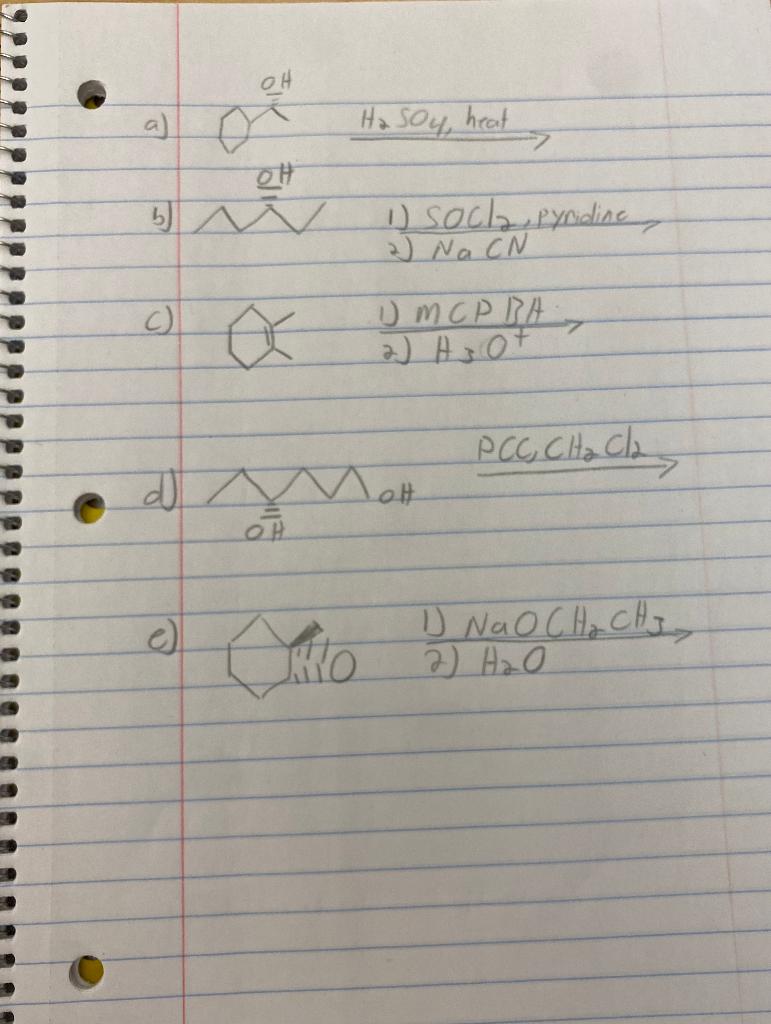 OH
a) H2SO4, heat
OH
b) 1) SOCl2, pyridine
2) NaCN
c) 1) MCPBA
2) H3O+
PCC, CH2Cl2
d) OH
OH
e) 1) NaOCH2CH3
O 2) H2O